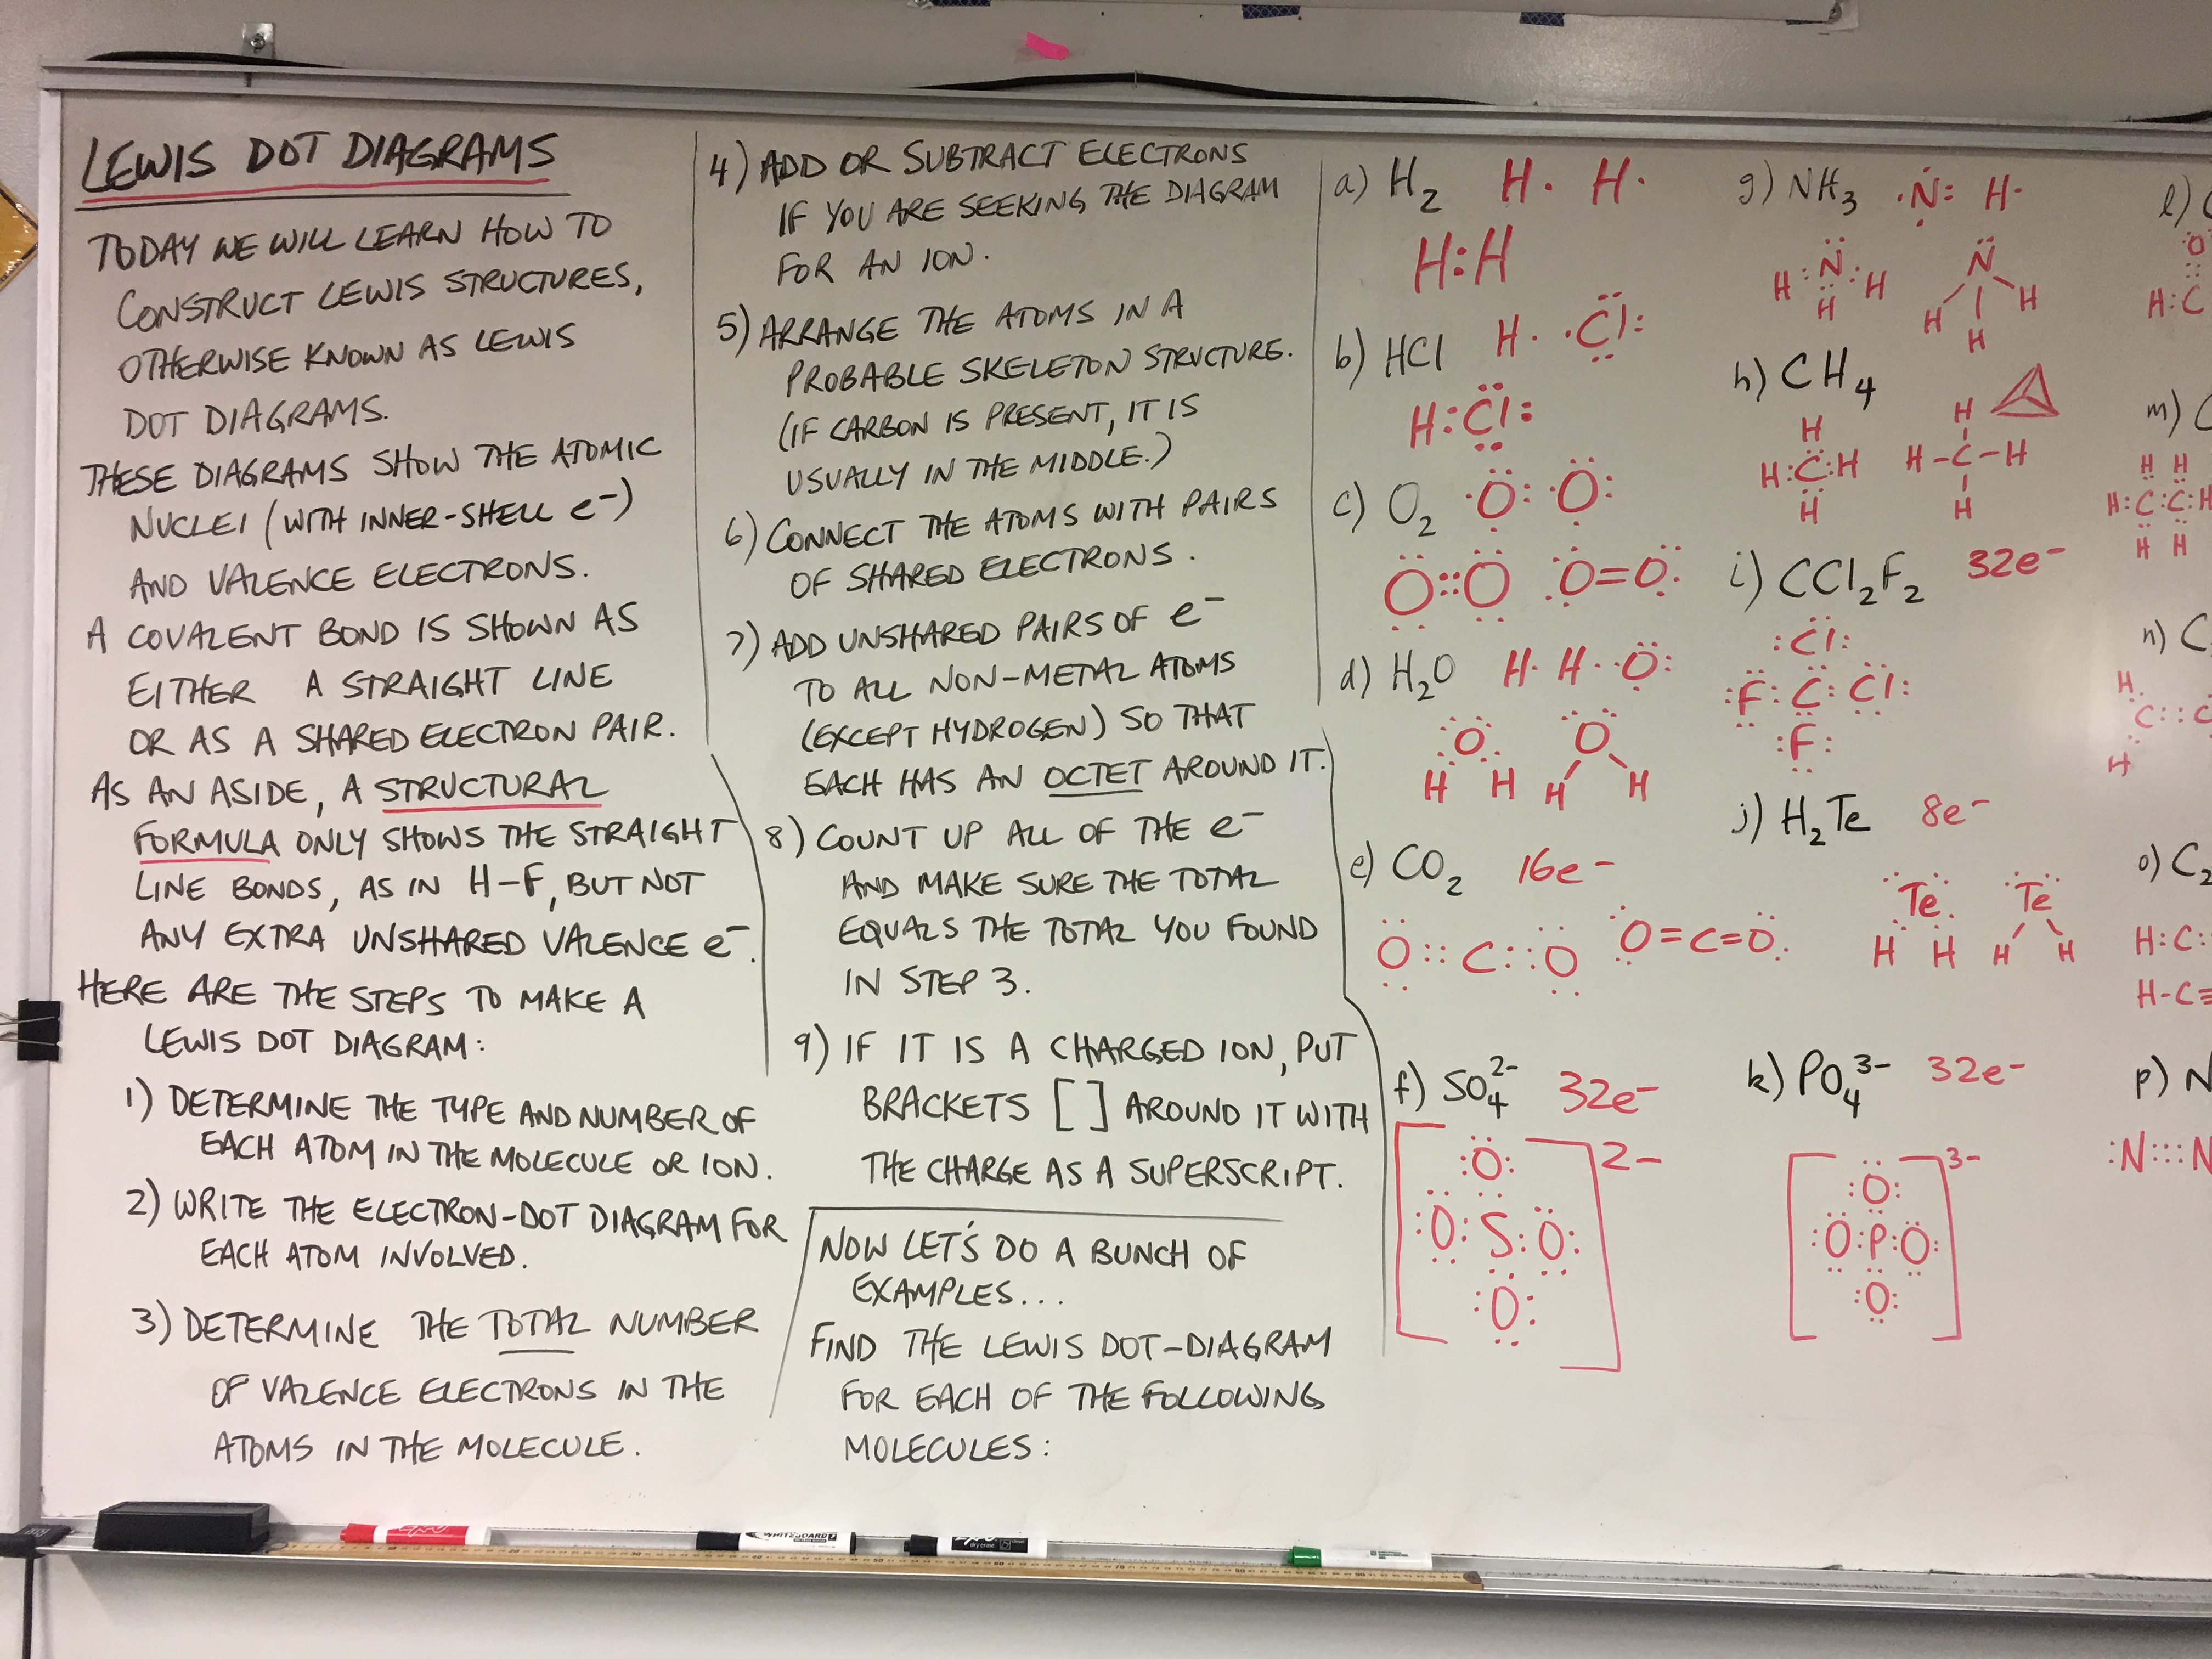 LEWIS DOT DIAGRAMS
TODAY WE WILL LEARN HOW TO
CONSTRUCT LEWIS STRUCTURES,
OTHERWISE KNOWN AS LEWIS
DOT DIAGRAMS.
THESE DIAGRAMS SHOW THE ATOMIC
NUCLEI (WITH INNER-SHELL e⁻)
AND VALENCE ELECTRONS.
A COVALENT BOND IS SHOWN AS
EITHER A STRAIGHT LINE
OR AS A SHARED ELECTRON PAIR.
AS AN ASIDE, A STRUCTURAL
FORMULA ONLY SHOWS THE STRAIGHT
LINE BONDS, AS IN H-F, BUT NOT
ANY EXTRA UNSHARED VALENCE e⁻.
HERE ARE THE STEPS TO MAKE A
LEWIS DOT DIAGRAM:
1) DETERMINE THE TYPE AND NUMBER OF
EACH ATOM IN THE MOLECULE OR ION.
2) WRITE THE ELECTRON-DOT DIAGRAM FOR
EACH ATOM INVOLVED.
3) DETERMINE THE TOTAL NUMBER
OF VALENCE ELECTRONS IN THE
ATOMS IN THE MOLECULE.
4) ADD OR SUBTRACT ELECTRONS
IF YOU ARE SEEKING THE DIAGRAM
FOR AN ION.
5) ARRANGE THE ATOMS IN A
PROBABLE SKELETON STRUCTURE.
(IF CARBON IS PRESENT, IT IS
USUALLY IN THE MIDDLE.)
6) CONNECT THE ATOMS WITH PAIRS
OF SHARED ELECTRONS.
7) ADD UNSHARED PAIRS OF e⁻
TO ALL NON-METAL ATOMS
(EXCEPT HYDROGEN) SO THAT
EACH HAS AN OCTET AROUND IT.
8) COUNT UP ALL OF THE e⁻
AND MAKE SURE THE TOTAL
EQUALS THE TOTAL YOU FOUND
IN STEP 3.
9) IF IT IS A CHARGED ION, PUT
BRACKETS [ ] AROUND IT WITH
THE CHARGE AS A SUPERSCRIPT.
NOW LET'S DO A BUNCH OF
EXAMPLES...
FIND THE LEWIS DOT-DIAGRAM
FOR EACH OF THE FOLLOWING
MOLECULES:
a) H₂ H· H·
H:H
b) HCl H· ·Cl:
H:Cl:
c) O₂ ·O: ·O:
O::O :O=O:
d) H₂O H· H· ·O:
:O:
H H
O
H H
e) CO₂ 16e⁻
O::C::O O=C=O
f) SO₄²⁻ 32e⁻
:O:
:O:S:O:
:O:
2-
g) NH₃ ·N: H·
H:N:H
H
N
H H
H
h) CH₄
H
H:C:H
H
H
H-C-H
H
i) CCl₂F₂ 32e⁻
:Cl:
:F:C:Cl:
:F:
j) H₂Te 8e⁻
Te
H H
Te
H H
k) PO₄³⁻ 32e⁻
:O:
:O:P:O:
:O:
3-
l)
O
H:C
m)
H H
H:C:C:H
H H
n) C
H
C::C
H
o) C₂
H:C:
H-C≡
p) N
:N:::N
WHITEBOARD